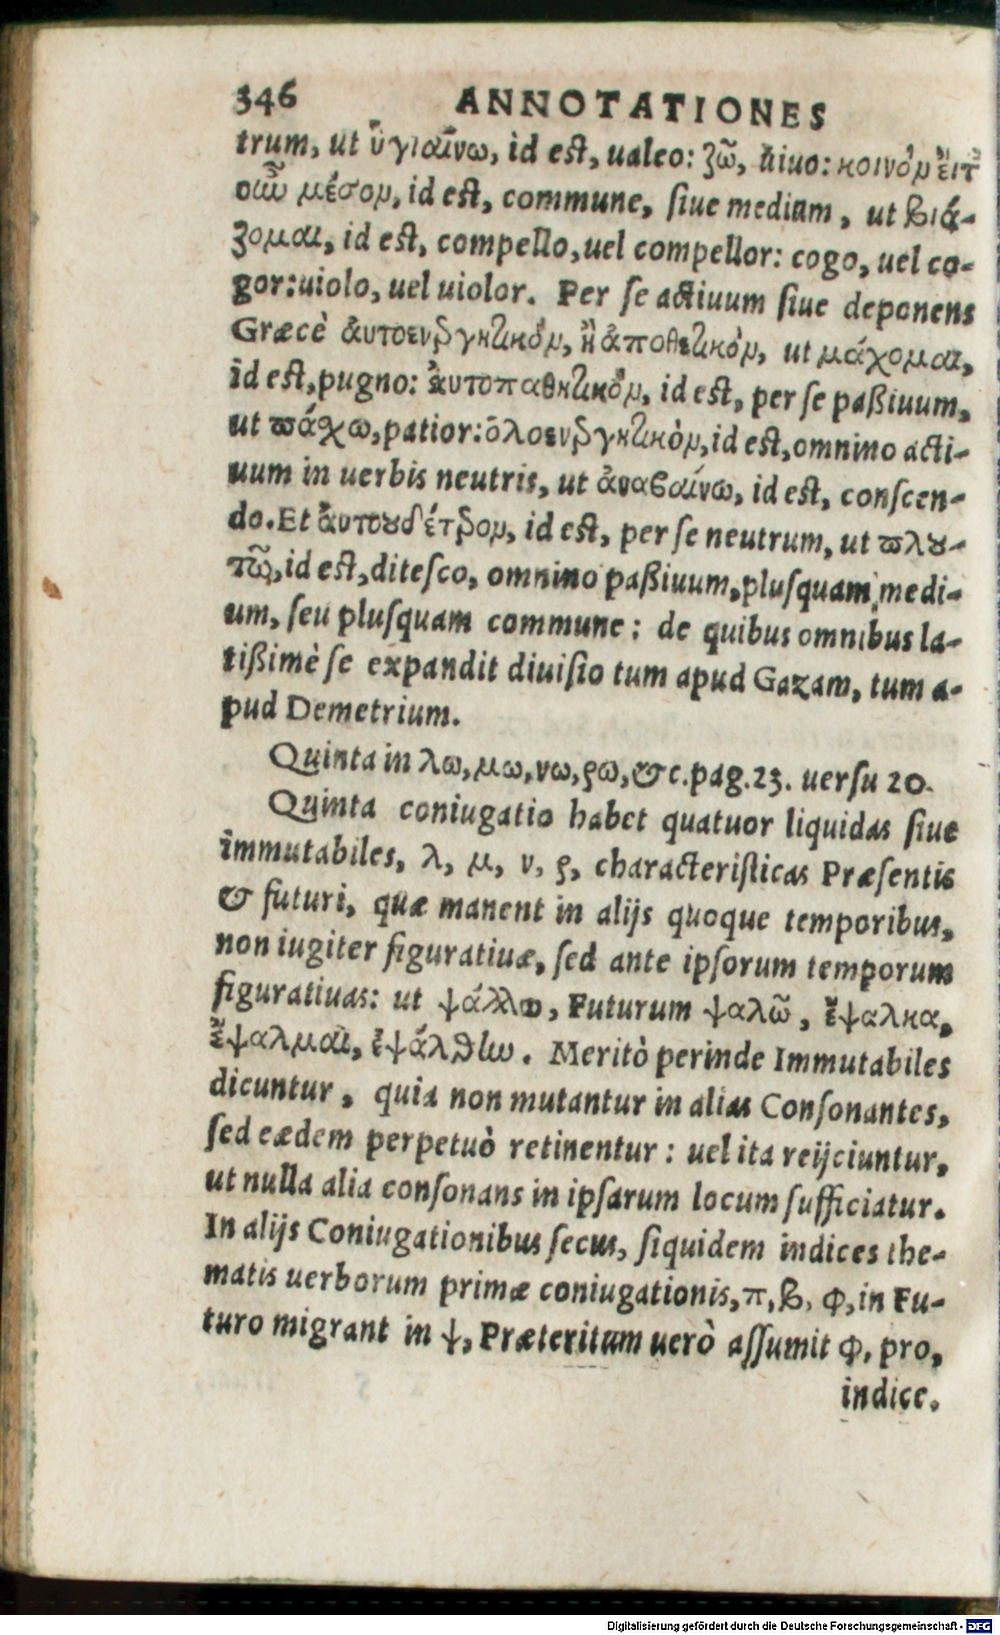 346 ANNOTATIONES
trum, ut ὑγιαίνω, id est, ualeo: ζῶ, uiuo: κοινὸν ἤτ
οιῦ μέσον, id est, commune, ſiue medium, ut βιά-
ζομαι, id est, compello, uel compellor: cogo, uel co-
gor: uiolo, uel uiolor. Per ſe actiuum ſiue deponens
Græcè ἀυτοενεργητικὸν, ἢ ἀποθετικὸν, ut μάχομαι,
id est, pugno: ἀυτοπαθητικὸν, id est, per ſe paßiuum,
ut πάχω, patior: ὁλοενεργητικὸν, id est, omnino acti-
uum in uerbis neutris, ut ἀναβαίνω, id est, conſcen-
do. Et ἀυτουδέτερον, id est, per ſe neutrum, ut πλου-
τῶ, id est, diteſco, omnino paßiuum, pluſquam medi-
um, ſeu pluſquam commune: de quibus omnibus la-
tißimè ſe expandit diuiſio tum apud Gazam, tum a-
pud Demetrium.
Quinta in λω, μω, νω, ρω, &c. pag. 23. uerſu 20.
Quinta coniugatio habet quatuor liquidas ſiue
immutabiles, λ, μ, ν, ρ, characteriſticas Præſentis
& futuri, quæ manent in alijs quoque temporibus,
non iugiter figuratiuæ, ſed ante ipſorum temporum
figuratiuas: ut ψάλλω, Futurum ψαλῶ, ἔψαλκα,
ἔψαλμαι, ἐψάλθίω. Meritò perinde Immutabiles
dicuntur, quia non mutantur in alias Conſonantes,
ſed eædem perpetuò retinentur: uel ita reijciuntur,
ut nulla alia conſonans in ipſarum locum ſufficiatur.
In alijs Coniugationibus ſecus, ſiquidem indices the-
matis uerborum primæ coniugationis, π, β, φ, in Fu-
turo migrant in ψ, Præteritum uerò aſſumit φ, pro,
indice.
Digitalisierung gefördert durch die Deutsche Forschungsgemeinschaft - DFG